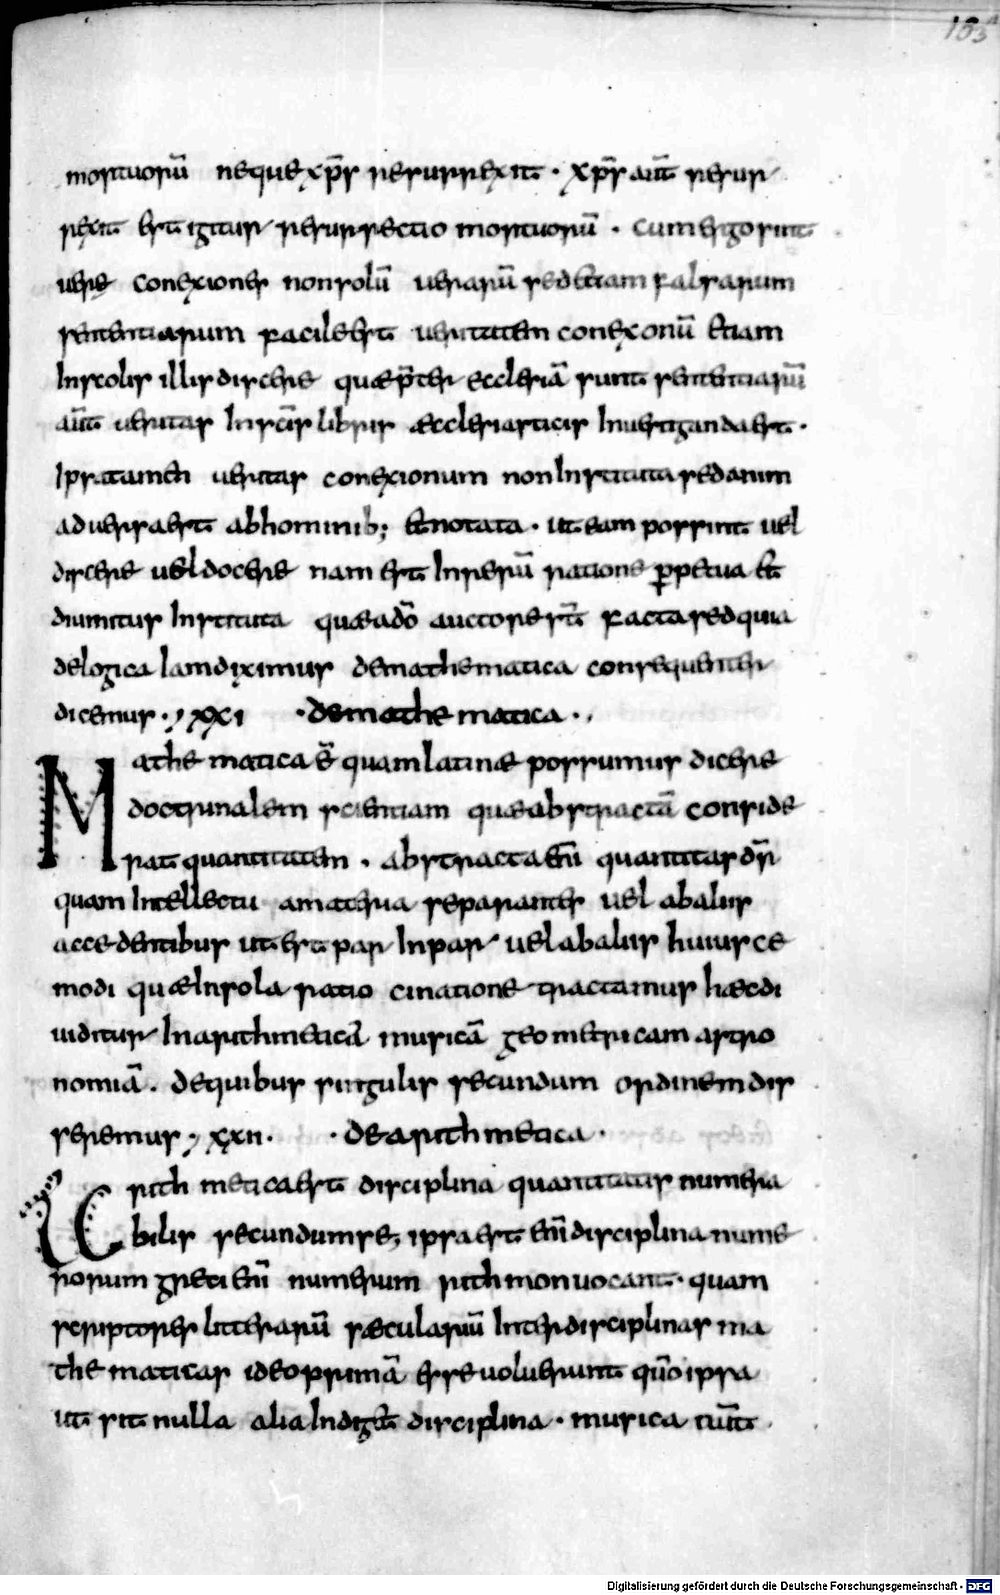 mortuorū neque xp̄s resurrexit · xp̄s aūt resur
rexit est igitur resurrectio mortuorū · cum ergo sint
uere conexiones non solū uerarū sed etiam falsarum
sententiarum facile est ueritatem conexonū etiam
In scolis illis discere quæ p̄ter ecclesiā sunt sententiarū
aūt ueritas In sc̄is libris æcclesiasticis Inuestiganda est ·
Ipsa tamen ueritas conexionum non Instituta sed anim
aduersa est ab hominib; et notata · ut eam possint uel
discere uel docere nam est In rerū ratione ꝑpetua et
diuinitus Instituta quæ a dō auctore est facta sed quia
de logica Iam diximus de mathematica consequenter
dicemus · XXXI · de mathematica ·
Mathematica ē quam latinæ possumus dicere
doctrinalem scientiam quæ abstractā conside
rat quantitatem · abstracta enī quantitas dr̄
quam Intellectu a materia separantes uel ab aliis
accedentibus ut est par Inpar uel ab aliis huiusce
modi quæ In sola ratiocinatione tractamus hæc di
uiditur In arithmeticā musicā geometricam astro
nomiā · de quibus singulis secundum ordinem dis
seremus · XXII · · de arithmetica ·
Arithmetica est disciplina quantitatis numera
bilis secundum se, ipsa est enī disciplina nume
rorum greci enī numerum rithmon uocant · quam
scriptores litterarū sæculariū Inter disciplinas ma
thematicas ideo primā esse uoluerunt qūo ipsa
ut sit nulla alia Indiget disciplina · musica aūt
Digitalisierung gefördert durch die Deutsche Forschungsgemeinschaft · DFG